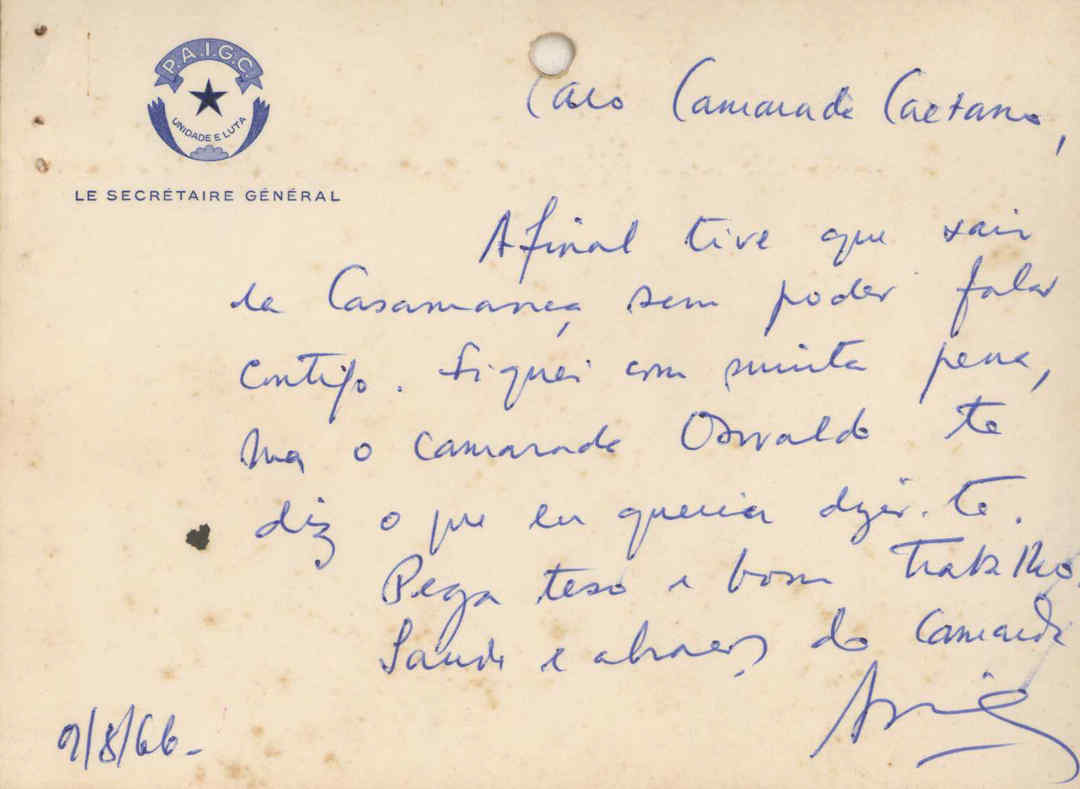 P.A.I.G.C.
UNIDADE E LUTA
LE SECRÉTAIRE GÉNÉRAL
Caro Camarada Caetano,
Afinal tive que sair
de Casamança sem poder falar
contigo. Fiquei com muita pena,
mas o camarada Osvaldo te
diz o que eu queria dizer-te.
Pega teso e bom trabalho
Saude e abraços do Camarada
9/8/66-